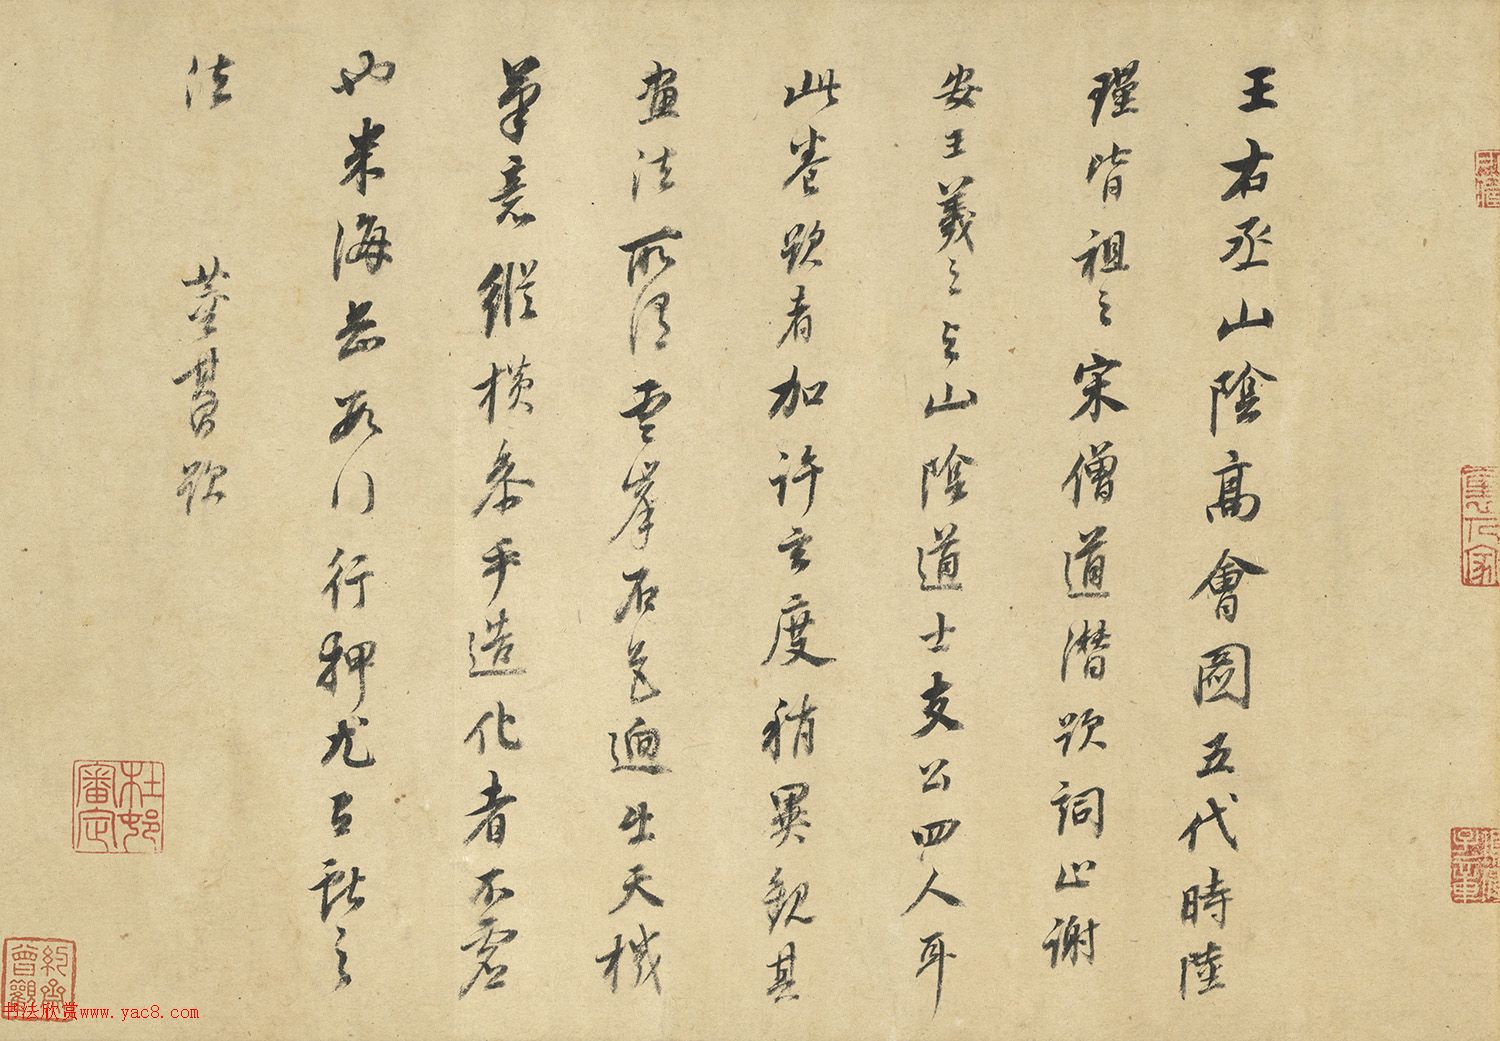 王右丞山陰高會圖五代時陸
瑾皆祖之宋僧道潛題詞止謝
安王羲之與山陰道士支公四人耳
此卷題者加許玄度稍異觀其
畫法所謂雲峯石色迥出天機
筆意縱橫參乎造化者不虛
也米海岳數行行押尤獻之
法
董其昌題
杜邨審定
約齋曾觀
书法欣赏www.yac8.com